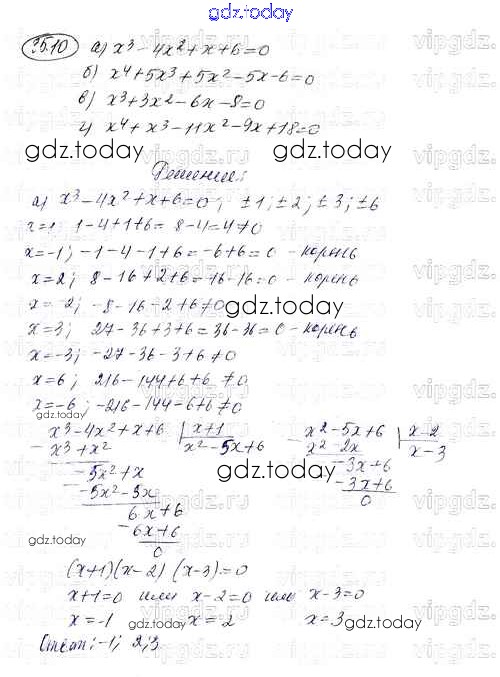 gdz.today
35.10 а) x³ - 4x² + x + 6 = 0
б) x⁴ + 5x³ + 5x² - 5x - 6 = 0
в) x³ + 3x² - 6x - 8 = 0
г) x⁴ + x³ - 11x² - 9x + 18 = 0
gdz.today gdz.today
Решение:
а) x³ - 4x² + x + 6 = 0; ±1; ±2; ±3; ±6
x=1; 1-4+1+6 = 8-4=4≠0
x=-1; -1-4-1+6 = -6+6=0 - корень
x=2; 8-16+2+6 = 16-16=0 - корень
x=-2; -8-16-2+6≠0
gdz.today
x=3; 27-36+3+6 = 36-36=0 - корень
x=-3; -27-36-3+6≠0
x=6; 216-144+6+6≠0
x=-6; -216-144-6+6≠0
x³-4x²+x+6 | x+1 x²-5x+6 | x-2
- x³+x² x²-5x+6 - x²-2x x-3
-5x²+x -3x+6
- -5x²-5x - -3x+6
gdz.today
6x+6 0
- 6x+6
gdz.today
0
(x+1)(x-2)(x-3)=0
x+1=0 или x-2=0 или x-3=0
x=-1 x=2 x=3
gdz.today gdz.today
Ответ: -1; 2; 3